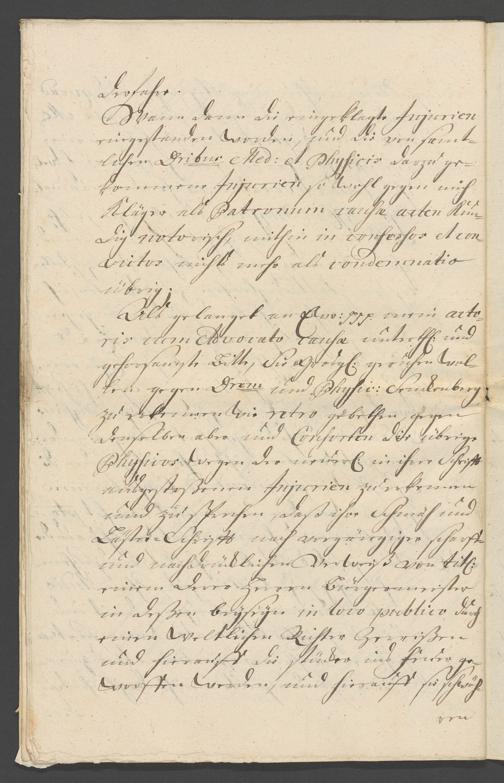 Wann dann die eingeklagte Injurien
eingestanden worden, und die von sämt-
lichen Dribus Med: et Physicis darzu ge-
kommene Injurien so wohl gegen mich
Kläger als Patronum causæ acten kün-
dig notorisch, mithin in confessos et con
victos nichts mehr als condemnatio
übrig;
Als gelanget an Ew: mein acto-
ris cum Advocato causæ und
gehorsamste Bitte, Sie geruhen wol
len gegen Drem und Physic: Senckenberg
zu erkennen wie retro gebethen, gegen
denselben aber und Consorten die übrige
Physicos wegen der in ihrer Schrifft
ausgestoßenen Injurien zu erkennen
und zu sprechen, daß ihre Schmäh und
Läster Schrifft nach vorgängiger scharff
und nachdrücklichen Verweiß von
einem derer Herren Burgermeister
in deßen beyseyn in loco publico durch
einen weltlichen Richter zerrißen
und hierauff die stücker ins Feuer ge-
worffen werden, und hierauff sie
ren